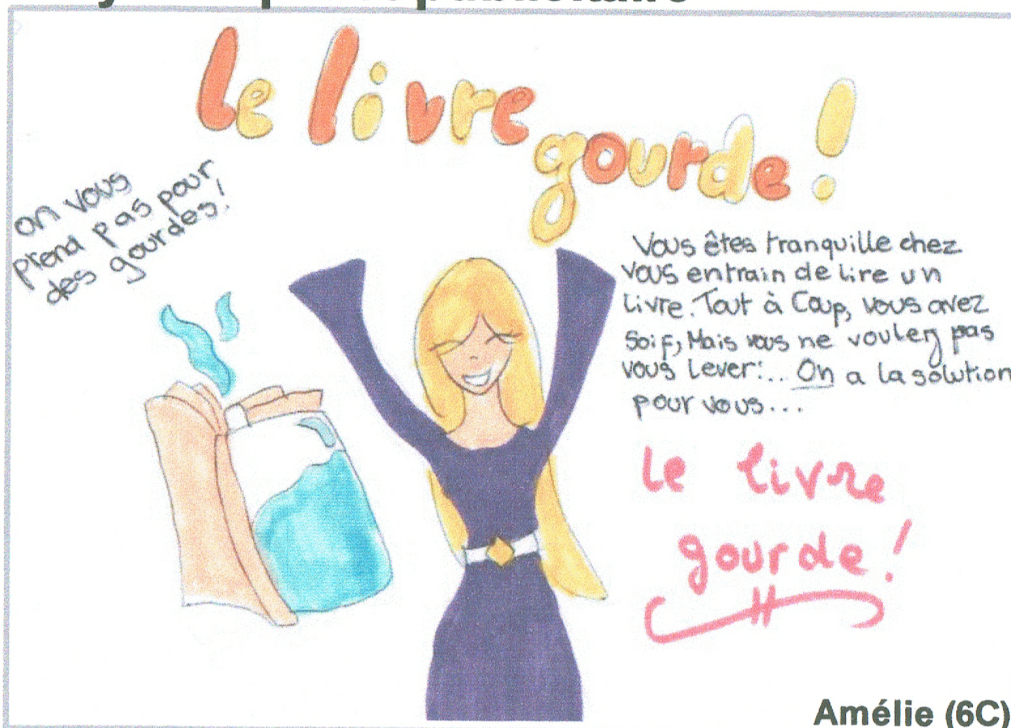 Le livre
gourde !
on vous
prend pas pour
des gourdes!
Vous êtes tranquille chez
vous entrain de lire un
livre. Tout à Coup, vous avez
soif, Mais vous ne voulez pas
vous lever!... On a la solution
pour vous...
Le livre
gourde !
Amélie (6C)